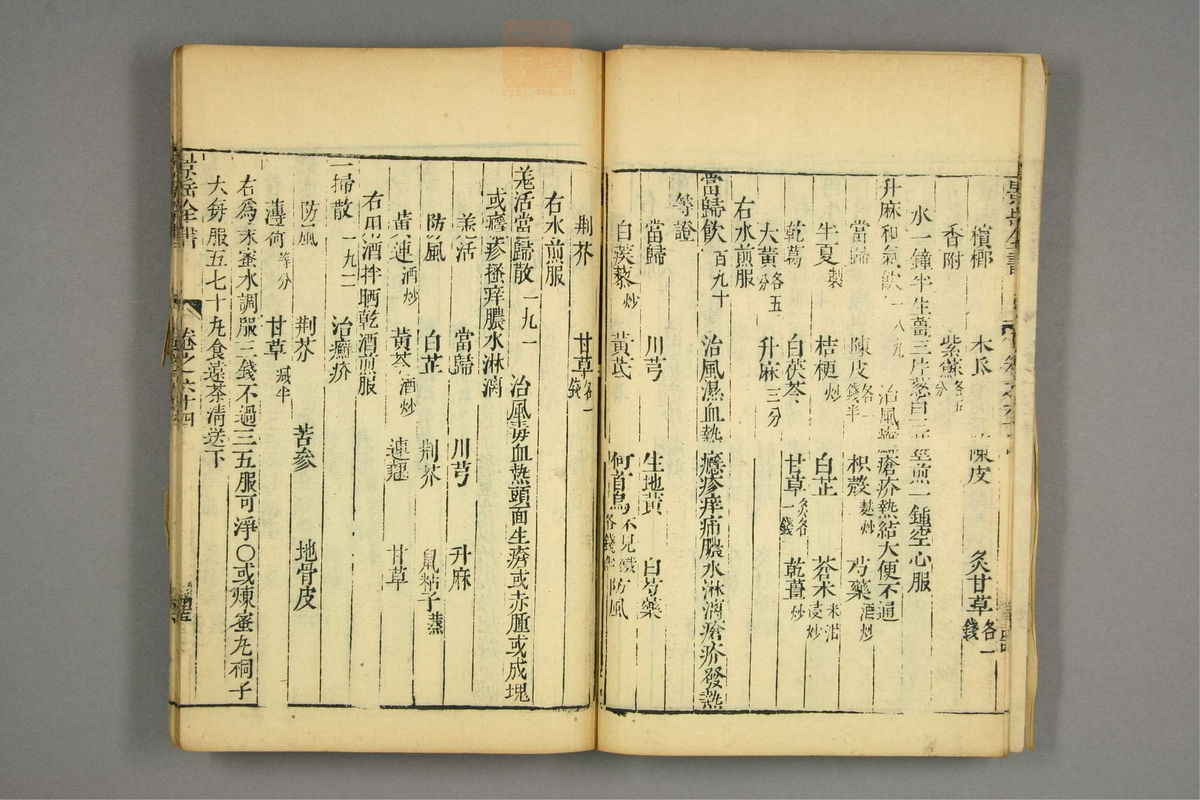 檳榔 木瓜 陳皮 炙甘草各一錢
香附 紫蘇各五分
水一鐘半生薑三片葱白三莖煎一鍾空心服
升麻和氣飲 治風癬瘡疥熱結大便不通
當歸 陳皮各錢半 枳殼麩炒 芍藥酒炒
半夏製 桔梗炒 白芷 蒼术米泔浸炒
乾葛 白茯苓 甘草炙各一錢 乾薑炒
大黃各五分 升麻三分
右水煎服
當歸飲百九十 治風濕血熱癮疹痒痛膿水淋漓瘡疥發熱
等證
當歸 川芎 生地黃 白芍藥
白蒺藜炒 黃芪 何首烏不見鐵各錢半 防風
荊芥 甘草各一錢
右水煎服
羌活當歸散一九一 治風毒血熱頭面生瘡或赤腫或成塊
或癮疹搔痒膿水淋漓
羌活 當歸 川芎 升麻
防風 白芷 荊芥 鼠粘子蒸
黃連酒炒 黃芩酒炒 連翹 甘草
右用酒拌晒乾酒煎服
一掃散一九二 治癬疥
防風 荊芥 苦參 地骨皮
薄荷等分 甘草減半
右爲末蜜水調服三錢不過三五服可淨〇或煉蜜丸桐子
大每服五七十丸食遠茶清送下
景岳全書 卷之六十四